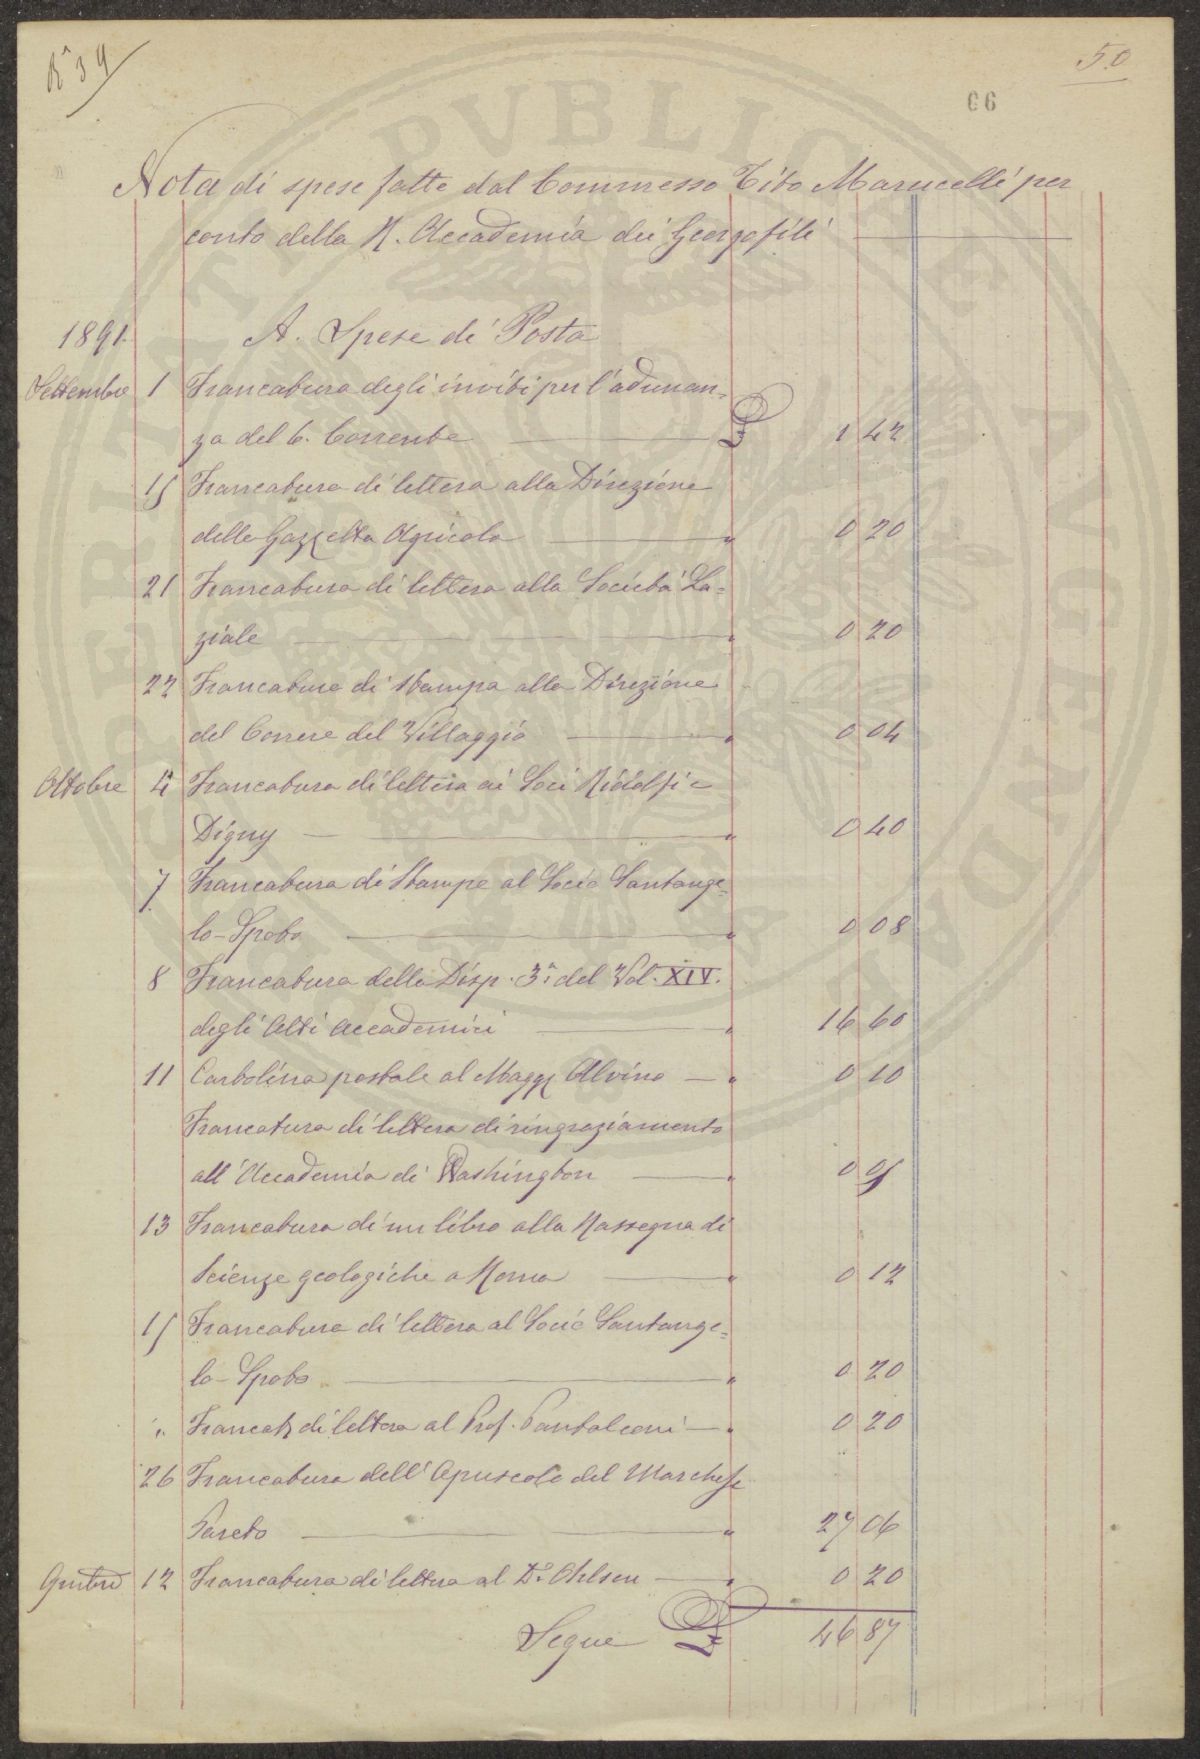 R.a 39
50
66
Nota di spese fatte dal Commesso Tito Marucelli per
conto della R. Accademia dei Georgofili
1891. A. Spese di Posta
Settembre 1 Francatura degli inviti per l'adunan=
za del 6. Corrente £ 1 42
15 Francatura di lettera alla Direzione
della Gazzetta Agricola " 0 20
21 Francatura di lettera alla Società La=
ziale " 0 20
22 Francatura di stampa alla Direzione
del Corriere del Villaggio " 0 04
Ottobre 4 Francatura di lettera ai Soci Ridolfi e
Digny " 0 40
7 Francatura di Stampe al Socio Santange=
lo-Spoto " 0 08
8 Francatura della Disp. 3a. del Vol. XIV.
degli Atti Accademici " 16 60
11 Cartolina postale al Magg Alvino " 0 10
Francatura di lettera di ringraziamento
all'Accademia di Washington " 0 05
13 Francatura di un libro alla Rassegna di
Scienze geologiche a Roma " 0 12
15 Francatura di lettera al Socio Santange=
lo-Spoto " 0 20
" Francat di lettera al Prof. Pantaleoni " 0 20
26 Francatura dell'Opuscolo del Marchese
Pareto " 27 06
12 Francatura di lettera al Dr. Ohlsen " 0 20
Segue £ 46 87
PVBLICAE
AVGENDAE
PROSPERITATI